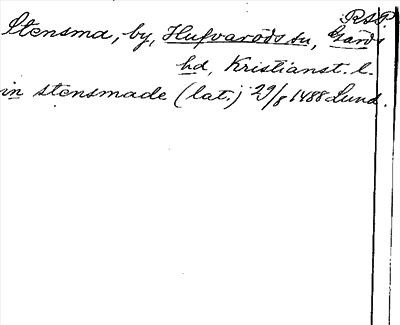 R.S.P.
Stensma, by, Hufvaröds sn, Gärds
hd, Kristianst. l.
in stensmade (lat.) 29/8 1488 Lund.